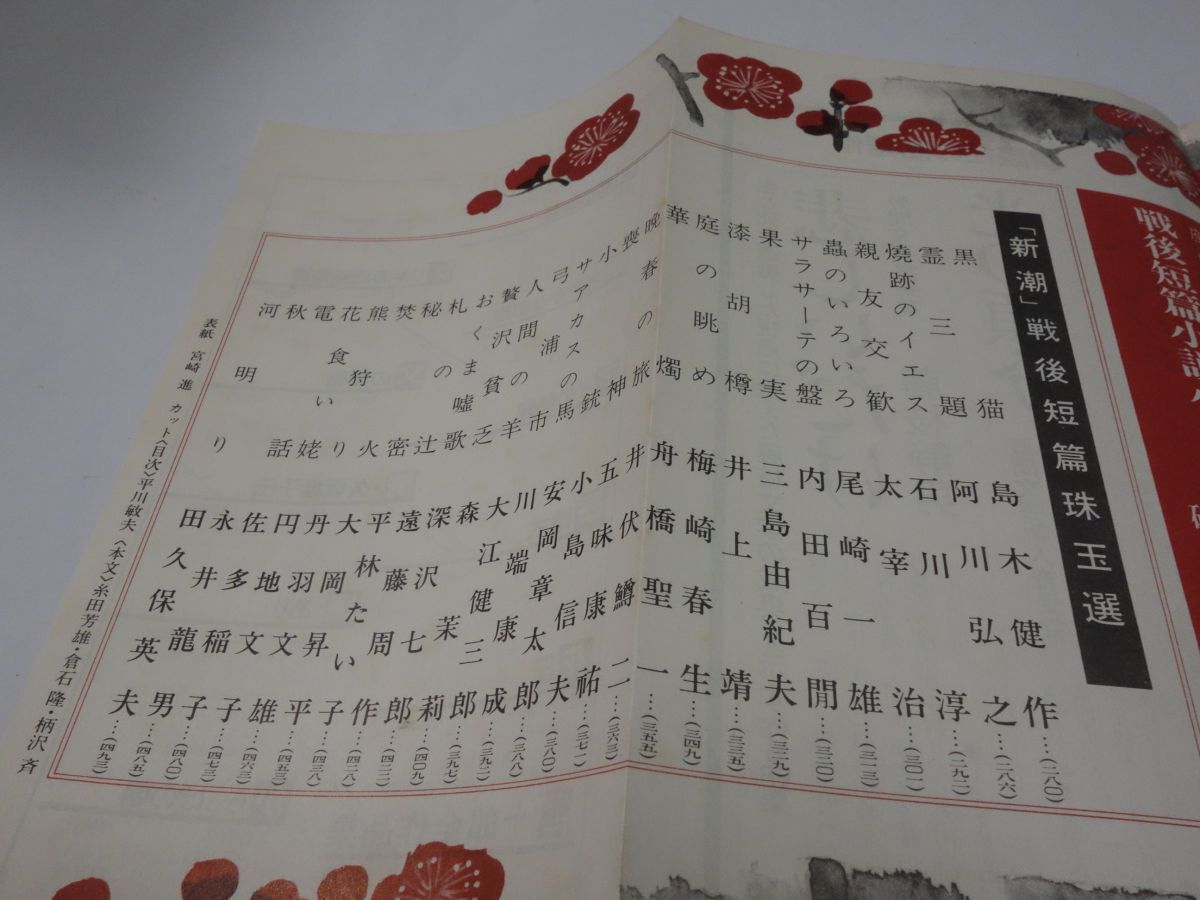 戦後短篇小説
「新潮」戦後短篇珠玉選
黒猫 島木健作…(二八〇)
霊三題 阿川弘之…(二八六)
燒跡のイエス 石川淳…(二九二)
親友交歓 太宰治…(三〇一)
蟲のいろいろ 尾崎一雄…(三一三)
サラサーテの盤 内田百閒…(三二〇)
果実 三島由紀夫…(三二九)
漆胡樽 井上靖…(三三五)
庭の眺め 梅崎春生…(三四九)
華燭 舟橋聖一…(三五五)
晩春の旅 井伏鱒二…(三六三)
喪神 五味康祐…(三七一)
小銃 小島信夫…(三八〇)
サアカスの馬 安岡章太郎…(三八八)
弓浦市 川端康成…(三九二)
人間の羊 大江健三郎…(三九七)
贅沢貧乏 森茉莉…(四〇九)
おくま嘘歌 深沢七郎…(四二二)
札の辻 遠藤周作…(四二八)
秘密 平林たい子…(四三八)
焚火 大岡昇平…(四五三)
熊狩り 丹羽文雄…(四六三)
花食い姥 円地文子…(四七三)
電話 佐多稲子…(四八〇)
秋 永井龍男…(四八五)
河明り 田久保英夫…(四九三)
表紙 宮崎 進 カット〈目次〉平川敏夫〈本文〉糸田芳雄・倉石 隆・柄沢 斉